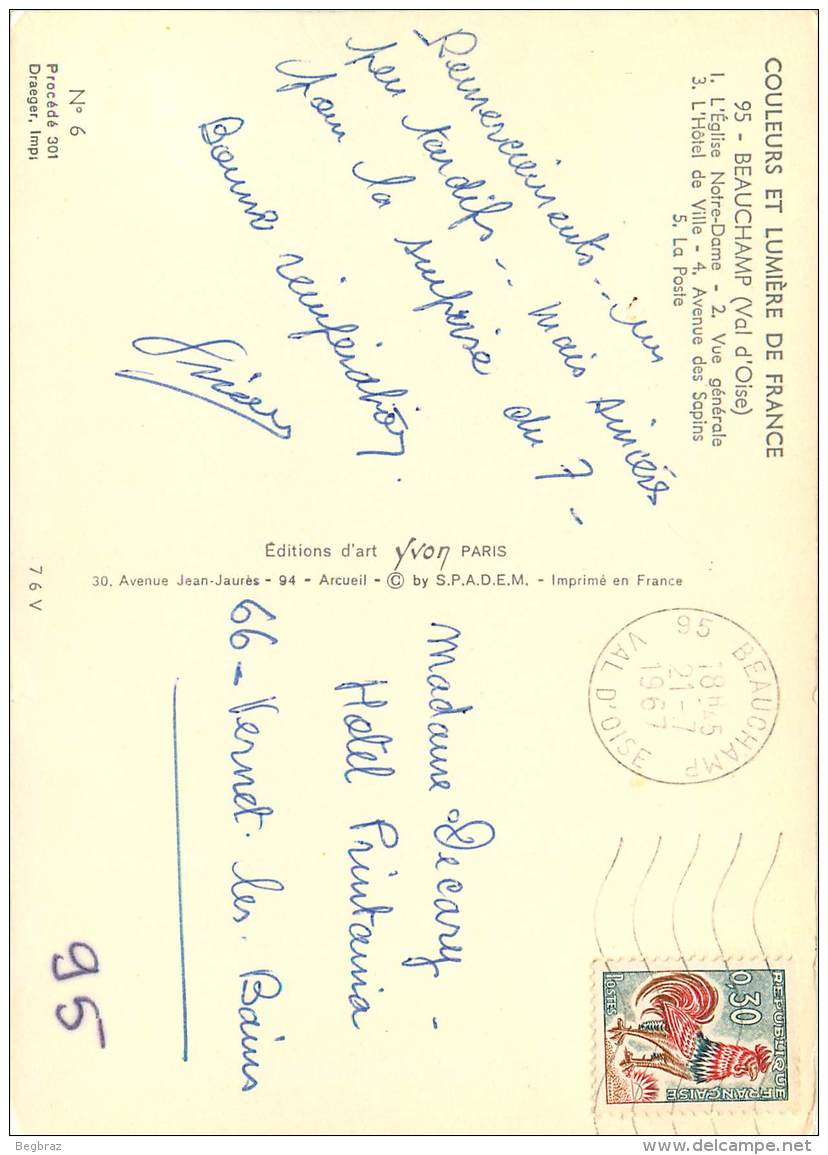 COULEURS ET LUMIÈRE DE FRANCE
95 - BEAUCHAMP (Val d'Oise)
1. L'Église Notre-Dame - 2. Vue générale
3. L'Hôtel de Ville - 4. Avenue des Sapins
5. La Poste
Remerciements.. un
peu tardifs.. mais sincères
pour la surprise du 7 -
Bonne
N° 6
Procédé 301
Draeger, Impr
Éditions d'art Yvon PARIS
30, Avenue Jean-Jaurès - 94 - Arcueil - © by S.P.A.D.E.M. - Imprimé en France
76V
95 BEAUCHAMP
18H45
21-7
1967
VAL D'OISE
REPUBLIQUE FRANÇAISE
0,30
POSTES
Madame Decary -
Hotel Printania
66 - Vernet. les. Bains
95
Begbraz
www.delcampe.net